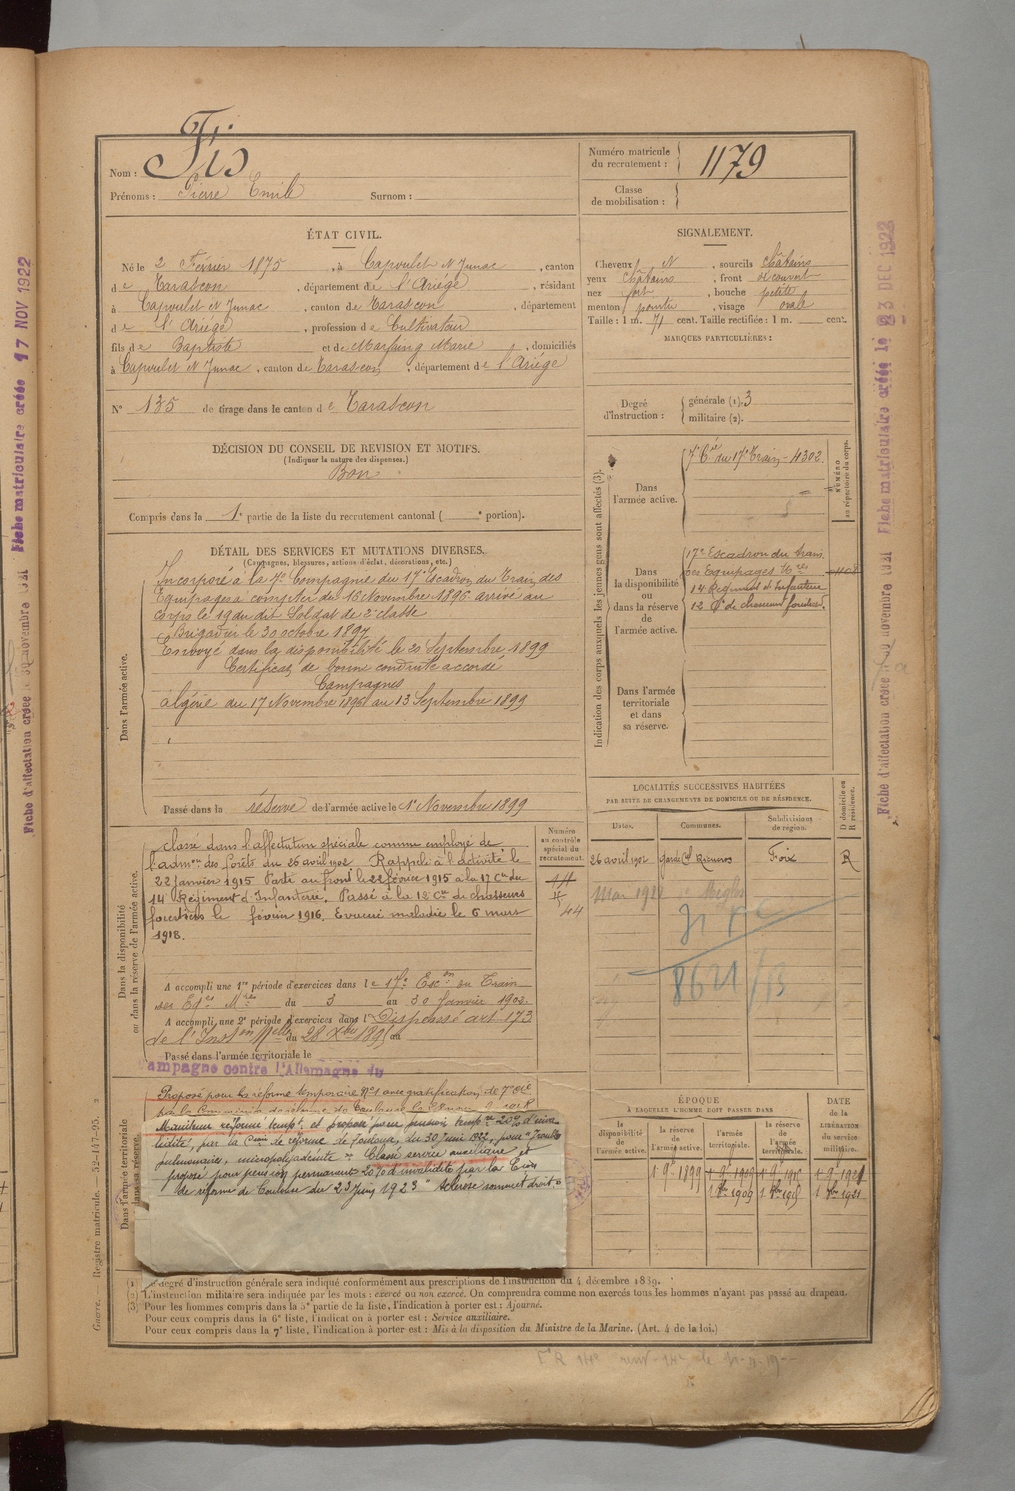 Nom : Fis
Prénoms : Pierre Emile Surnom :
Numéro matricule du recrutement : 1179
Classe de mobilisation :
ÉTAT CIVIL.
Né le 2 Février 1875, à Capoulet N Junac, canton
de Tarascon, département de l'Ariège, résidant
à Capoulet N Junac, canton de Tarascon, département
de l'Ariège, profession de Cultivateur
fils de Baptiste et de Marfaing Marie, domiciliés
à Capoulet N Junac, canton de Tarascon, département de l'Ariège
N° 135 de tirage dans le canton de Tarascon
SIGNALEMENT.
Cheveux N, sourcils châtains
yeux châtains, front découvert
nez fort, bouche petite
menton pointu, visage ovale
Taille : 1 m. 71 cent. Taille rectifiée : 1 m. cent.
MARQUES PARTICULIÈRES :
Degré d'instruction : générale (1). 3
militaire (2).
DÉCISION DU CONSEIL DE REVISION ET MOTIFS.
(Indiquer la nature des dispenses.)
Bon
Compris dans la 1e partie de la liste du recrutement cantonal ( e portion).
DÉTAIL DES SERVICES ET MUTATIONS DIVERSES.
(Campagnes, blessures, actions d'éclat, décorations, etc.)
Dans l'armée active.
Incorporé à la 7e Compagnie du 17e Escadron du Train des
Equipages à compter du 16 Novembre 1896 arrivé au
corps le 19 du dit Soldat de 2e classe
Brigadier le 30 octobre 1897
Envoyé dans la disponibilité le 20 Septembre 1899
Certificat de bonne conduite accordé
Campagnes
Algérie du 17 Novembre 1896 au 13 Septembre 1899
Passé dans la réserve de l'armée active le 1er Novembre 1899
Indication des corps auxquels les jeunes gens sont affectés (3).
NUMÉRO au répertoire du corps.
Dans l'armée active.
7e Cie du 17e Train - 4302
Dans la disponibilité ou dans la réserve de l'armée active.
17e Escadron du train
des Equipages Mres
14 Régiment d'Infanterie
12 Cie de chasseurs forestiers.
Dans l'armée territoriale et dans sa réserve.
LOCALITÉS SUCCESSIVES HABITÉES
PAR SUITE DE CHANGEMENTS DE DOMICILE OU DE RÉSIDENCE.
Dates. Communes. Subdivisions de région. D domicile ou R résidence.
26 avril 1902 Foix R
8621/13
Dans la disponibilité ou dans la réserve de l'armée active.
Numéro au contrôle spécial du recrutement.
44
Classé dans l'affectation spéciale comme employé de
l'admon des forêts du 26 avril 1902 Rappelé à l'activité le
22 janvier 1915 Parti au front le 22 février 1915 à la 17 Cie du
14 Régiment d'Infanterie. Passé à la 12 Cie de chasseurs
forestiers le février 1916. Evacué maladie le 6 mars
1918.
A accompli une 1re période d'exercices dans le 17e Escon du Train
des Eqes Mres du 3 au 30 Janvier 1902
A accompli une 2e période d'exercices dans l Dispensé art 173
de l'Inston Melle du 28 Xbre 1895 au
Passé dans l'armée territoriale le
Campagne contre l'Allemagne du
Dans l'armée territoriale et dans sa réserve.
Proposé pour la réforme temporaire N°1 avec gratification de 7e cie
Maintenu réforme tempre et proposé pour pension tempre 20% d'inva
lidité, par la Con de réforme de Toulouse, du 30 Juin 1922, pour "Troubles
pulmonaires, micropolyadénite" Classé service auxiliaire et
proposé pour pension permanente 20% d'invalidité par la Con
de réforme de Toulouse du 23 Juin 1923 "sclérose sommet droit"
ÉPOQUE
À LAQUELLE L'HOMME DOIT PASSER DANS
la disponibilité de l'armée active. la réserve de l'armée active. l'armée territoriale. la réserve de l'armée territoriale.
DATE de la LIBÉRATION du service militaire.
1 9e 1899 1 9e 1909 1 9e 1915 1 9e 1921
1 8bre 1909 1 8bre 1915 1 8bre 1921
(1) Le degré d'instruction générale sera indiqué conformément aux prescriptions de l'instruction du 4 décembre 1889.
(2) L'instruction militaire sera indiquée par les mots : exercé ou non exercé. On comprendra comme non exercés tous les hommes n'ayant pas passé au drapeau.
(3) Pour les hommes compris dans la 5e partie de la liste, l'indication à porter est : Ajourné.
Pour ceux compris dans la 6e liste, l'indication à porter est : Service auxiliaire.
Pour ceux compris dans la 7e liste, l'indication à porter est : Mis à la disposition du Ministre de la Marine. (Art. 4 de la loi.)
Guerre. — Registre matricule. — 52-147-95.
Fiche matriculaire créée 17 NOV 1922
Fiche matriculaire créée le 23 DEC 1922